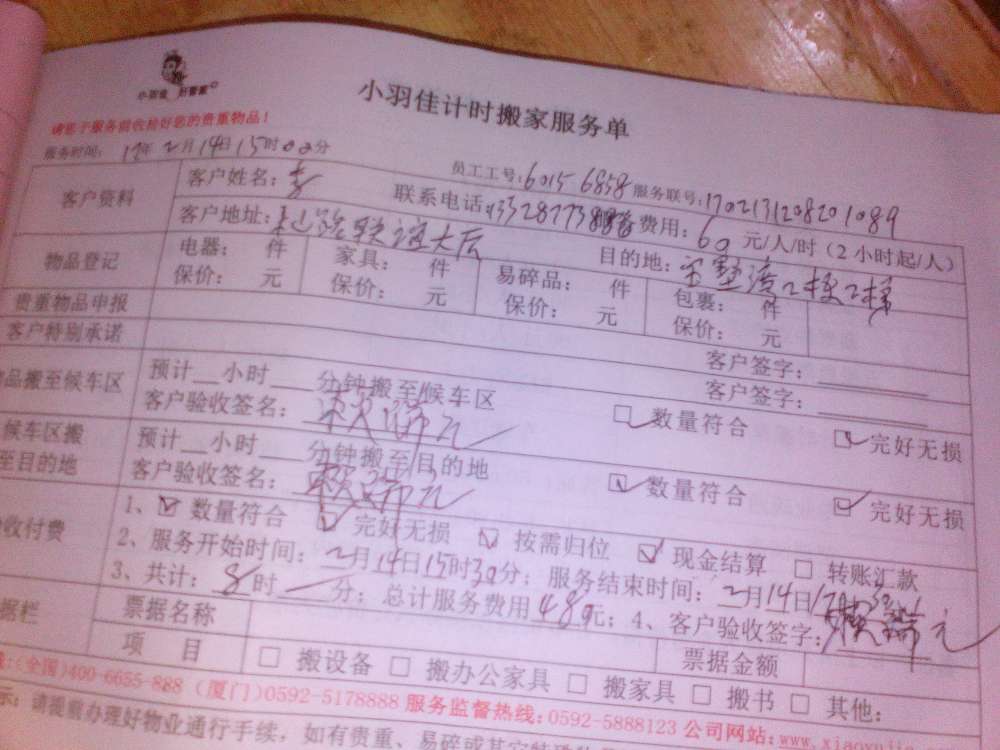 小羽佳 好管家
小羽佳计时搬家服务单
请您于服务前收检好您的贵重物品!
服务时间: 17年2月14日15时00分
员工工号:6015 6858 服务联号:1702131208201089
客户资料 客户姓名:李 联系电话: 费用:60元/人/时(2小时起/人)
客户地址: 联谊大厦 目的地:
物品登记 电器: 件 家具: 件 易碎品: 件 包裹: 件
保价: 元 保价: 元 保价: 元 保价: 元
贵重物品申报 客户签字:
客户特别承诺 客户签字:
品搬至候车区 预计__小时___分钟搬至候车区
客户验收签名: ☑数量符合 ☑完好无损
候车区搬 预计__小时___分钟搬至目的地
至目的地 客户验收签名: ☑数量符合 ☑完好无损
收付费 1、☑数量符合 ☑完好无损 ☑按需归位 ☑现金结算 □转账汇款
2、服务开始时间:2月14日15时30分;服务结束时间:2月14日
3、共计:8时一分;总计服务费用480元;4、客户验收签字:
据栏 票据名称 票据金额
项 目 □搬设备 □搬办公家具 □搬家具 □搬书 □其他:
:(全国)400-6655-888 (厦门)0592-5178888 服务监督热线:0592-5888123 公司网站:
示:请提前办理好物业通行手续,如有贵重、易碎或其它特殊